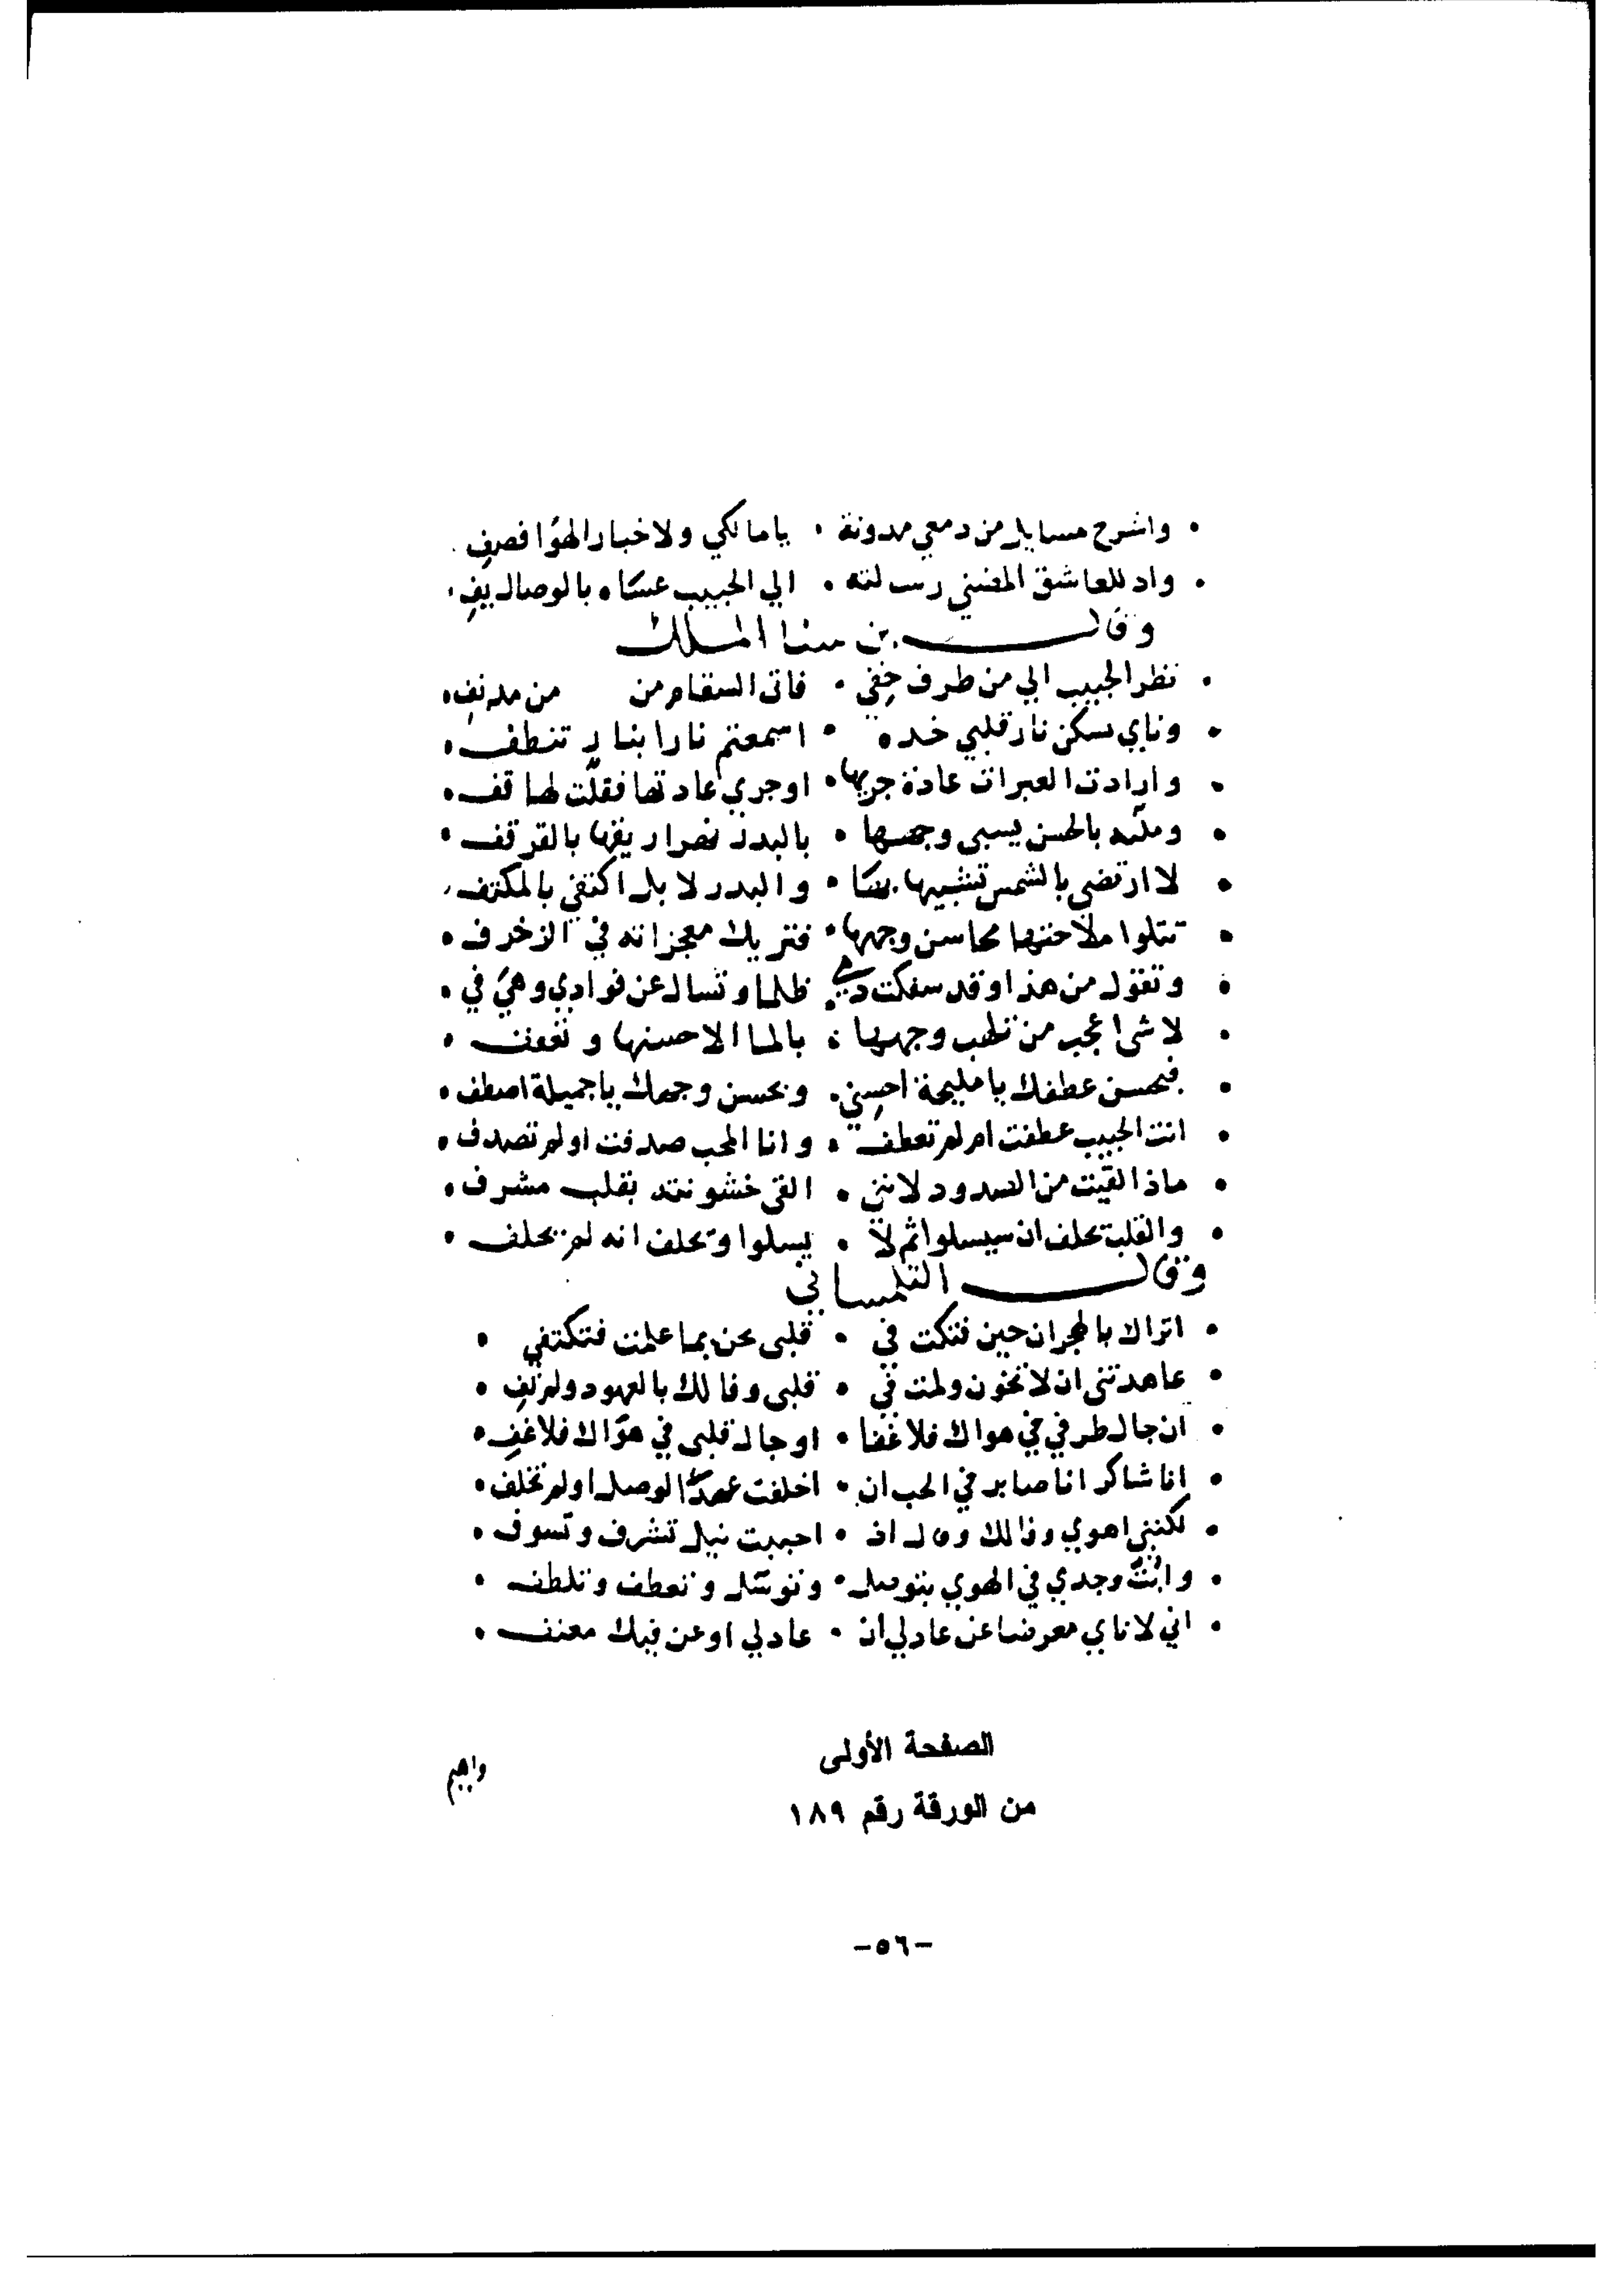 • واشرح مسايل من دمعي مدونة • يا مالكي ولاخبار الهوا فصف •
• واد للعاشق المضني رسالته • الي الحبيب عساه بالوصال يف •
وقال بن سنا الملك
• نظر الحبيب الي من طرف خفي • فاتى السقام من من مدنف •
• وناي يسكن نار قلبي خده • اسمعتم نارا بنار تنطف •
• وارادت العبرات عادة جريها • اوجري عادتها فقلت لها قف •
• بالحسن يسبى وجهها • بالبدر ريقها بالقرقف •
• لا ارتضى بالشمس تشبيها بها • والبدر لا بل اكتفي بالمكتف •
• تتلوا ملاحتها محاسن وجهها • فتريك معجزاته في الزخرف •
• وتقول من هذا وقد سفكت دمي • ظلما وتسال عن فوادي وهي في •
• لا شى اعجب من تلهب وجهها • بالما الا حسنها وتعفف •
• فبحسن عطفك يا مليحة احسني • وبحسن وجهك يا جميلة اصطف •
• انت الحبيب عطفت ام لم تعطف • وانا المحب صدفت اولم تصدف •
• ماذا لقيت من الصدود لانني • القى خشونته بقلب مشرف •
• والقلب يحلف ان سيسلوا ثم لا • يسلوا ويحلف انه لم يحلف •
وقال التلمساني
• اتراك بالهجران حين فتكت في • قلبى بما علمت فتكتفي •
• عاهدتني ان لا تخون ولمت في • قلبى وفا لك بالعهود ولم تف •
• ان جال طرفي في هواك فلا غفا • اوجال قلبى في هواك فلا غف •
• انا شاكر انا صابر في الحب ان • اخلفت عهد الوصل اولم تخلف •
• لكنني اهوي وذالك اذ • احببت نيل تشرف وتسوف •
• وابث وجدي في الهوي بتوصل • وتوسل وتعطف وتلطف •
• اني لاناي معرضا عن عادلي ان • عادلي اوعن فيك معنف •
الصفحة الأولى
من الورقة رقم ١٨٩
واهيم
-٥٦-